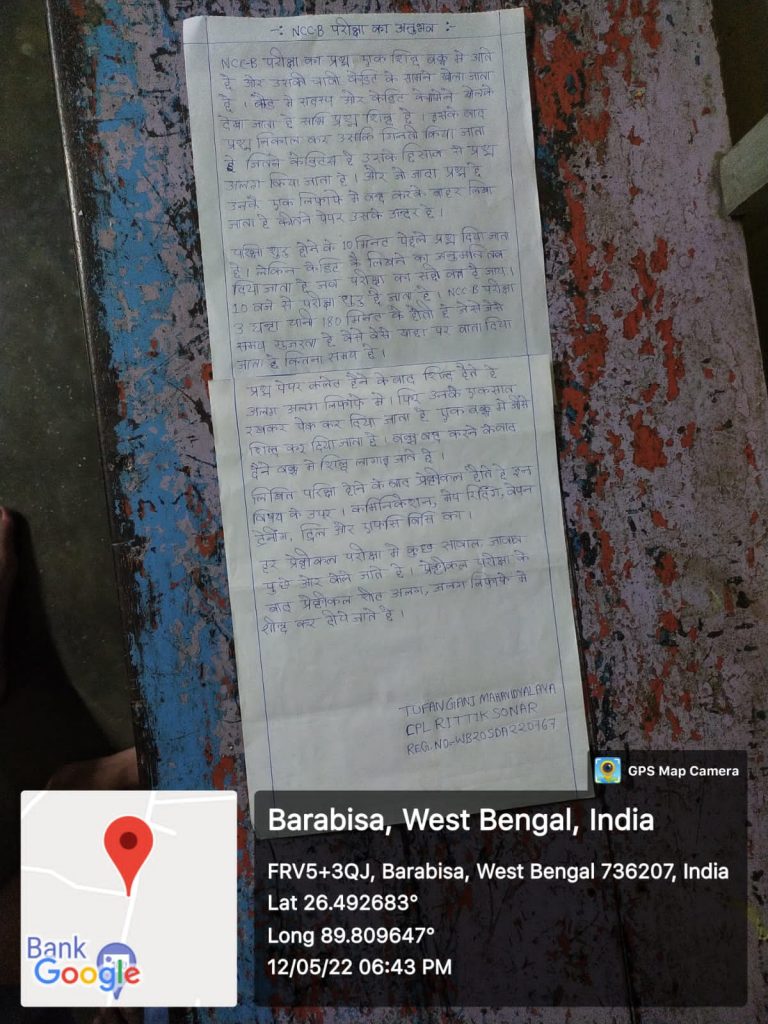 -: NCC-B परीक्षा का अनुभव :-
NCC-B परीक्षा का प्रश्न एक शिल्ड बक्स मे आते
है और उसकी चाबी कैडिट के सामने खोला जाता
है । बाद मे सदस्य और कैडिट
देखा जाता है प्रश्न शिल्ड है । इसके बाद
प्रश्न निकाल कर उसकी गिनती किया जाता
है जितने कैडिटस है उसके हिसाब से प्रश्न
अलग किया जाता है । और जो जादा प्रश्न है
उनको एक लिफाफे मे बन्द करके बाहर लिखा
जाता है कीतने पेपर उसके अन्दर है ।
परिक्षा शुरु होने के 10 मिनट पेहले प्रश्न दिया जाता
है । लेकिन कैडिट को लिखने का अनुमति तब
दिया जाता है जब परीक्षा का सही वक्त हो जाय ।
10 बजे से परीक्षा शुरु हो जाता है । NCC-B परीक्षा
3 घन्टा यानी 180 मिनिट के होती है जैसे जैसे
समय गुजरता है वैसे वैसे याहा पर बाता दिया
जाता है कितना समय है ।
प्रश्न पेपर कलेट होने के बाद शिल्ड होते है
अलग अलग लिफाफे मे । फिर उनके एकसाथ
रखकर पेक कर दिया जाता है एक बक्स मे
शिल्ड कर दिया जाता है । बक्स बन्द करने के बाद
बक्स मे शिल्ड लागाइ जाते है ।
लिखित परिक्षा होने के बाद प्रेक्टीकल होते है इन
विषय के उपर । कामिनिकेशन, मेप रिडिंग, वेपन
ट्रेनींग, ड्रिल और एफसि बिसि का ।
हर प्रेक्टीकल परीक्षा मे कुछ सावाल जावाब
पुछे और जाते है । प्रेक्टीकल परीक्षा के
बाद प्रेक्टीकल शीट अलग, अलग लिफाफे मे
शील्ड कर दीये जाते है ।
TUFANGANJ MAHAVIDYALAYA
CPL RITTIK SONAR
REG. NO=WB20SDA220767
GPS Map Camera
Barabisa, West Bengal, India
FRV5+3QJ, Barabisa, West Bengal 736207, India
Lat 26.492683°
Long 89.809647°
12/05/22 06:43 PM
Bank
Google